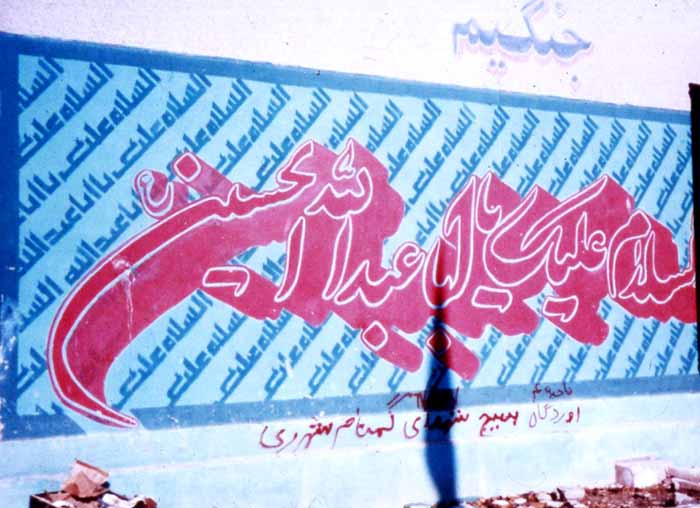 جنگیم
السلام علیک یا اباعبدالله الحسین ع
السلام علیک یا اباعبدالله
ناحیه
اوردگاه بسیج شهدای گمنام